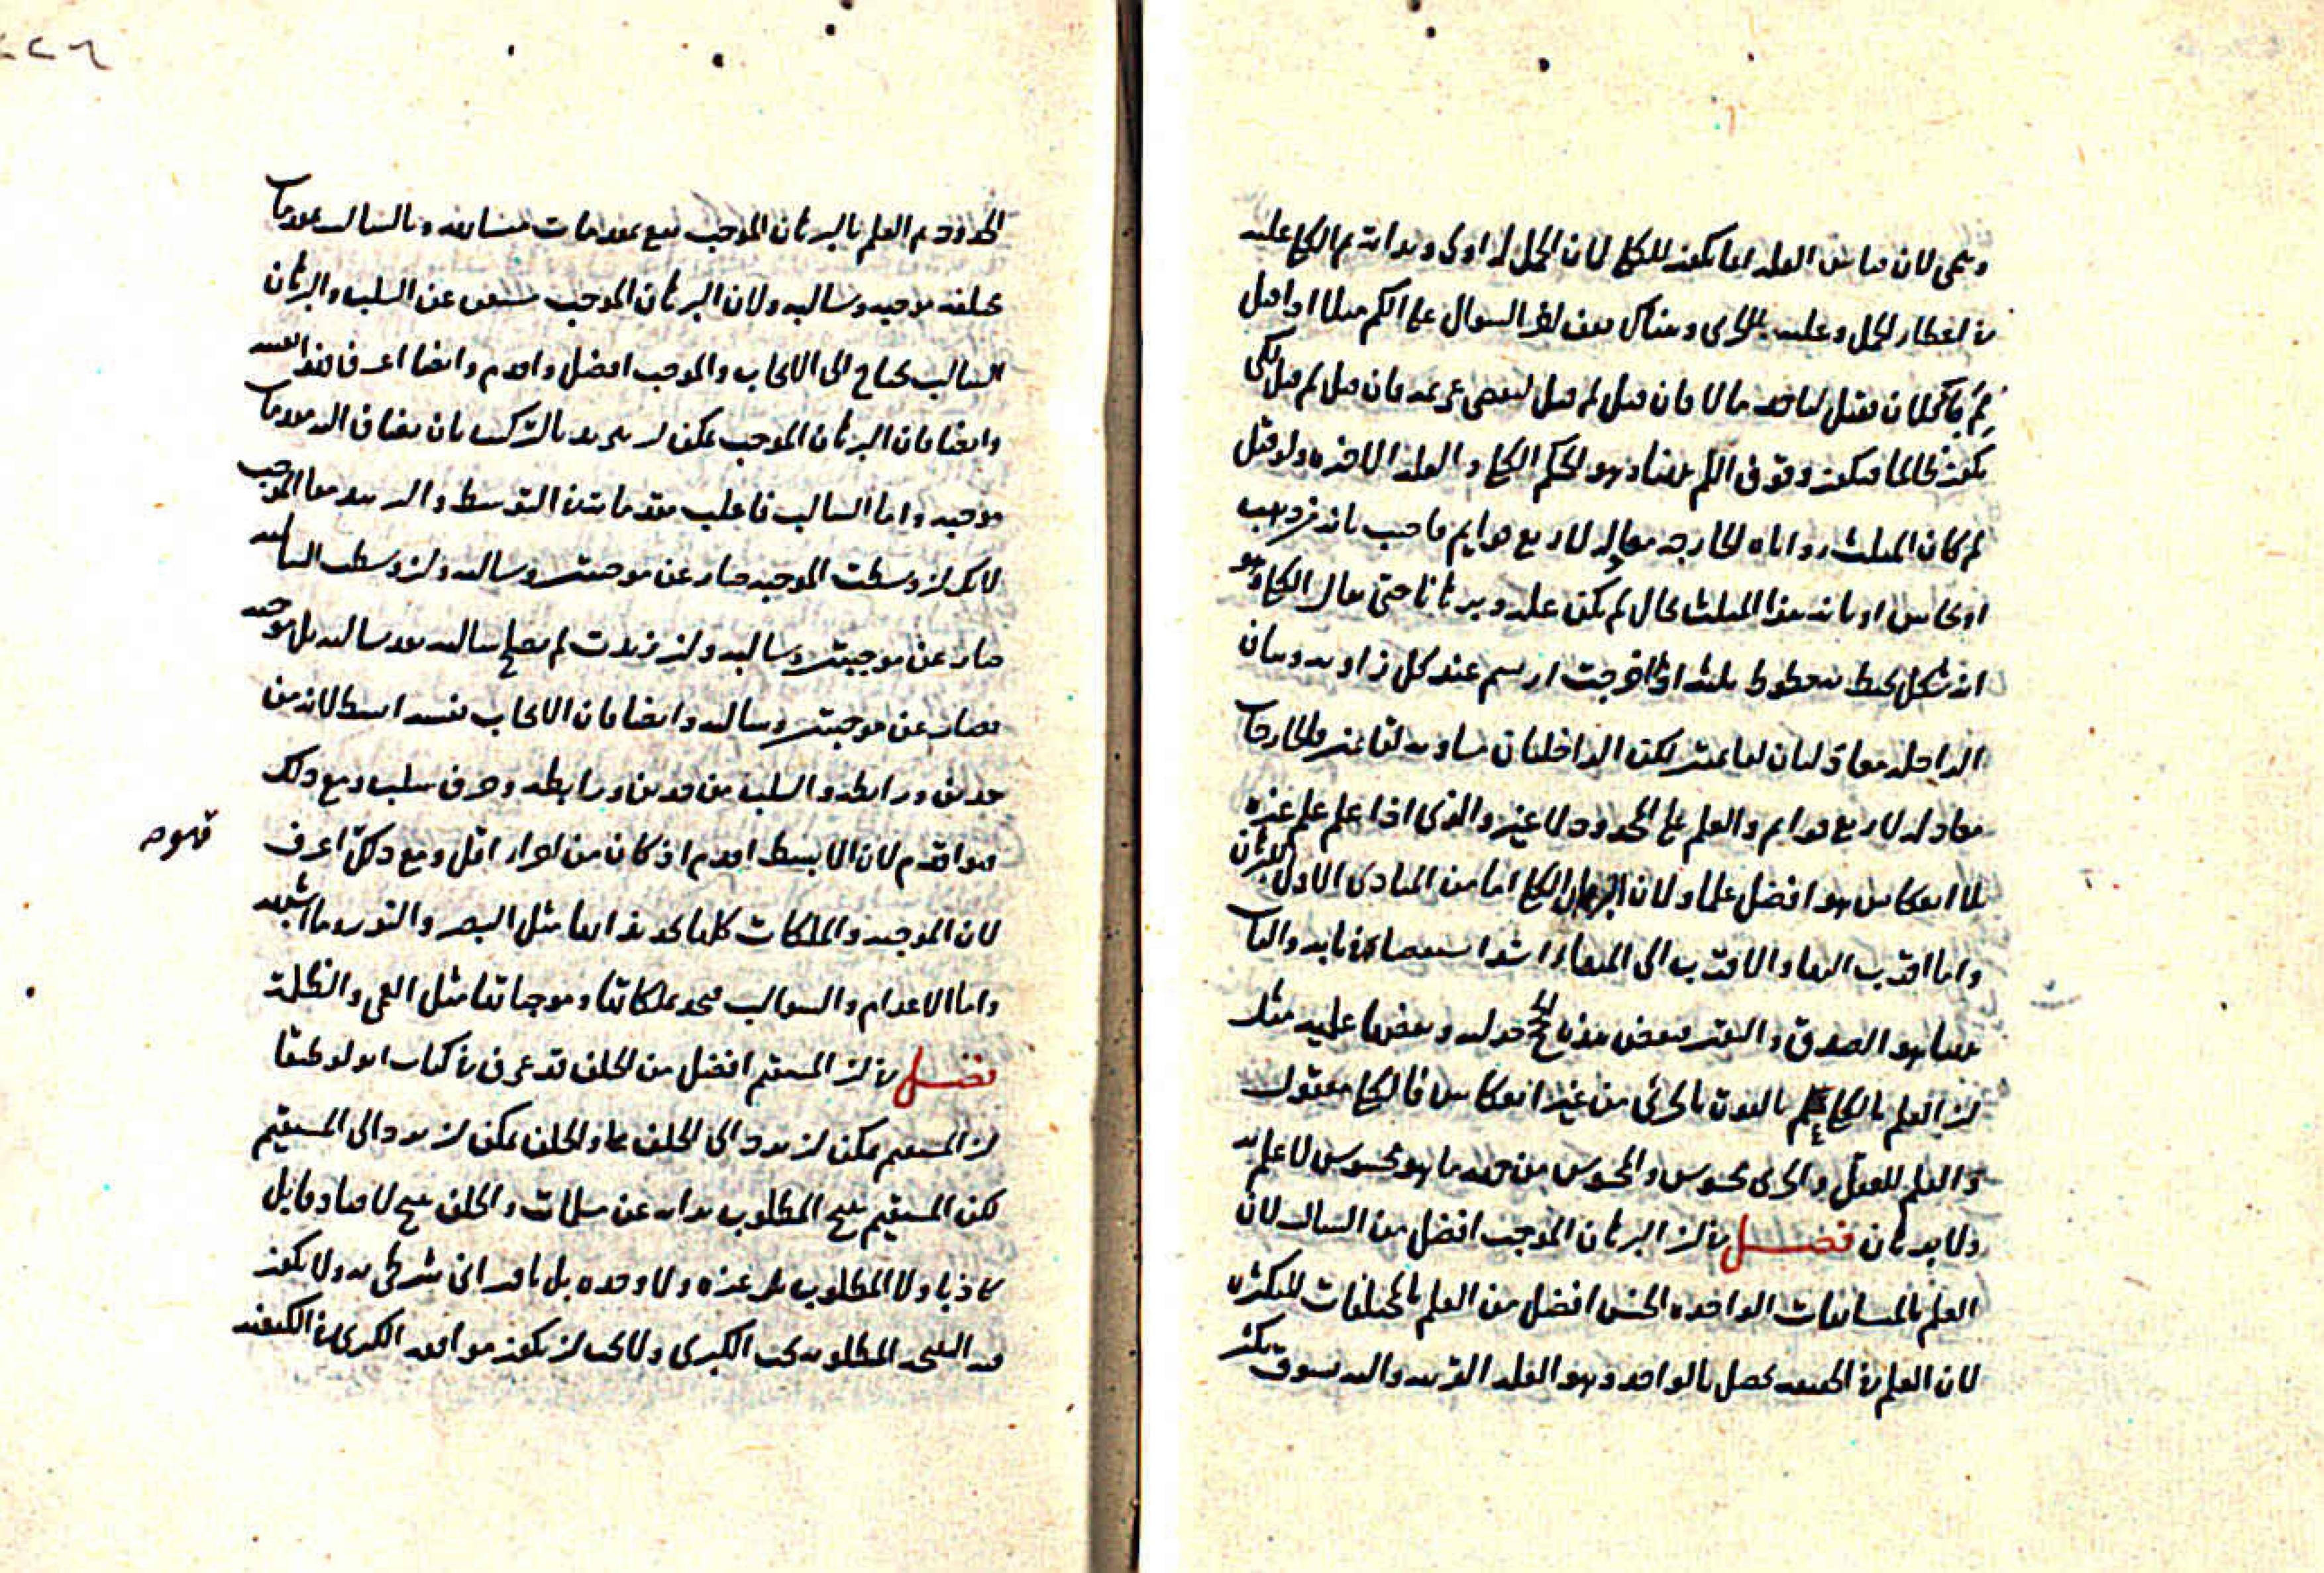 لان العلة انما تكون للكلى لان الحمل له اولى وبذاته ثم الكلى علة
فى اعطاء الحمل وعلية الجزئى وهناك يقف السؤال
فان قيل لم قيل لبعض فان قيل لم قيل لكى
يكون ظالما فيكون وقوف اللم عندنا وهو الحكم الكلى والعلة الاخيرة ولو قيل
لم كان المثلث زواياه الخارجة معادلة لاربع قوايم فاجيب بانه من ذهب
او نحاس او بانه هذا المثلث بحال لم يكن علة وبرهانا حتى يقال الكلى وهو
انه شكل يحيط به خطوط ثلثة اذا اخرجت ارتسم عند كل زاوية زوجان
الداخلة لكن الداخلتان مساوية لقايمتين والخارجات
معادلة لاربع قوايم والعلم على الحدود لا غير والذى اذا علم علم غيره
بلا انعكاس هو افضل علما ولان البرهان الكلى اما من المبادى الاول للبرهان
واما اقرب اليها والاقرب الى المبادى اشد استقصاء فى بابه
هو الصدق واليقين فبعض هذه الحجج جدلية وبعضها علمية مثل
ان العلم بالكلى علم بالقوة بالجزئى من غير انعكاس فالكلى معقول
والعلم للعقل والجزئى محسوس والمحسوس من جهة ما هو محسوس لا علم به
ولا برهان فصل فى ان البرهان الموجب افضل من السالب لان
العلم بالمتشابهات الواحدة الجنس افضل من العلم بالمختلفات المتكثرة
لان العلم فى الحقيقة يحصل بالواحد وهو العلة القريبة واليه يسوق تكثر
الحدود ثم العلم بالبرهان الموجب يقع بمقدمات متشابهة وبالسالب بمقدمات
مختلفة موجبة وسالبة ولان البرهان الموجب مستغن عن السلب والبرهان
السالب يحتاج الى الايجاب والموجب افضل واقدم وايضا اعرف
وايضا فان البرهان الموجب يمكن ان يزيد بالتركيب بان يضاف اليه مقدمات
موجبة واما السالب فاغلب مقدماته التوسط والتزييد معا الموجب
لانك ان وسطت الموجبة صار عن موجبتين وسالبة وان وسطت السالبة
صار عن موجبتين وسالبة وان زيدت لم يصلح سالبة بعد سالبة بل موجبة
فصار عن موجبتين وسالبة وايضا فان الايجاب نفسه ابسط لانه من
حدين ورابطة والسلب من حدين ورابطة وحرف سلب ومع ذلك
فهو اقدم لان الابسط اقدم اذ كان من اجزاء اقل ومع ذلك اعرف
فهو
لان الموجبة والملكات كلها تحد بذاتها مثل البصر والنور وما اشبهه
واما الاعدام والسوالب فتحد بملكاتها وموجباتها مثل العمى والظلمة
فصل فى ان المستقيم افضل من الخلف قد عرف فى كتاب انولوطيقا
ان المستقيم يمكن ان يرد الى الخلف والخلف يمكن ان يرد الى المستقيم
لكن المستقيم ينتج المطلوب بذاته عن مسلمات والخلف ينتج لا صادقا بل
كاذبا ولا المطلوب بل غيره ولا وحده بل باقترانى شرطى به ولا يكون
فيه النتيجة المطلوبة تحت الكبرى ولا يجب ان يكون موافقة الكبرى فى الكيفية